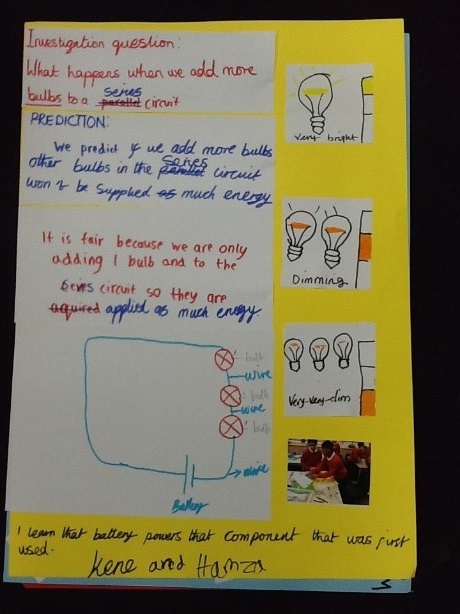 Investigation question:
What happens when we add more
bulbs to a parallel series circuit
PREDICTION:
We predict if we add more bulbs
other bulbs in the parallel series circuit
won't be supplied as much energy
It is fair because we are only
adding 1 bulb and to the
series circuit so they are
aquired applied as much energy
bulb
wire
bulb
wire
bulb
wire
Battery
Very bright
Dimming
Very-very-dim
I learn that battery powers that component that was first
used.
Kene and Hamza